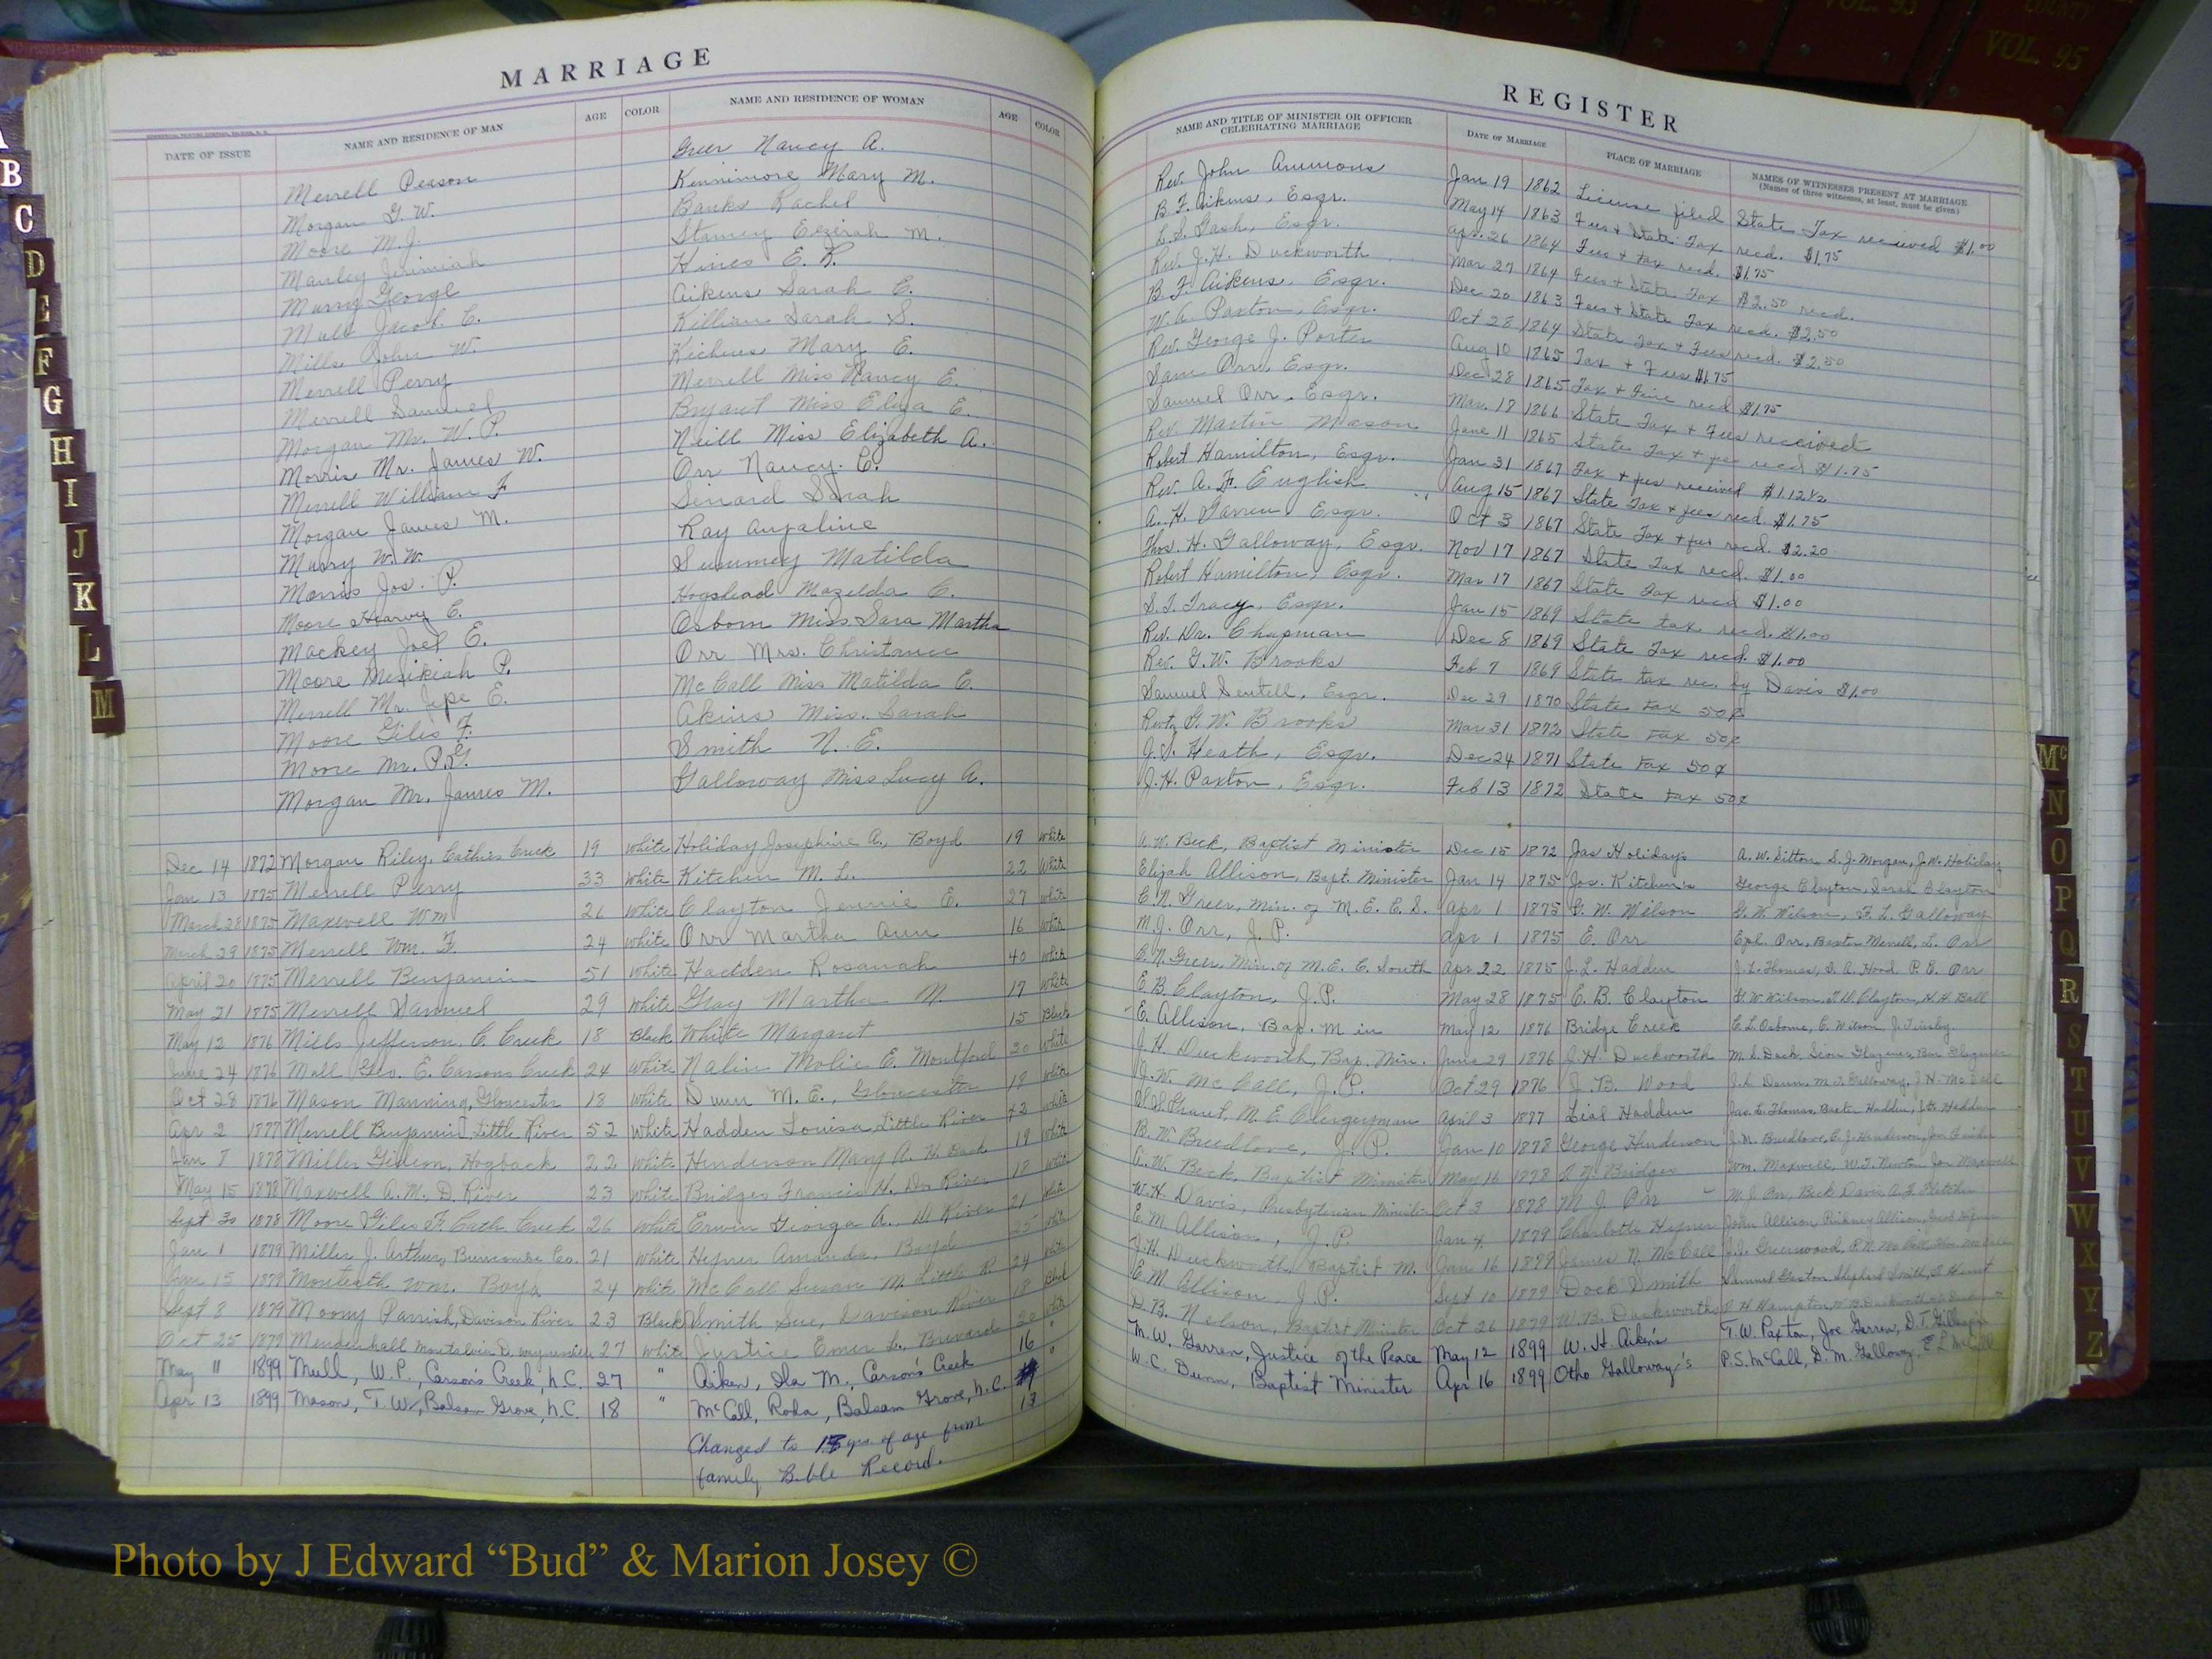 MARRIAGE
DATE OF ISSUE NAME AND RESIDENCE OF MAN AGE COLOR NAME AND RESIDENCE OF WOMAN AGE COLOR
Merrell Greer Nancy A.
Morgan G. W. Kinnimore Mary M.
Moore M. J. Banks Rachel
Manley Jerimiah Stamey M.
George Hines E. K.
Jacob C. Aikens Sarah E.
Mills John W. Killian Sarah S.
Merrell Perry Mary E.
Merrell Samuel Merrell Miss Nancy E.
Morgan Mr. W. P. Bryant Miss Eliza E.
Morris Mr. James W. Neill Miss Elizabeth A.
Merrell William F Orr Nancy C.
Morgan James M. Sarah
W. W. Ray Anjaline
Morris Jos. P. Summey Matilda
Moore Harvey C. Hogshead Mazelda C.
Mackey Joel E. Osborn Miss Sara Martha
Moore P. Orr Mrs. Christance
Merrell Mr. E. McCall Miss Matilda C.
Moore Giles F. Akins Miss. Sarah
Moore Mr. P.G. Smith N. E.
Morgan Mr. James M. Galloway Miss Lucy A.
Dec 14 1872 Morgan Riley, Cathies Creek 19 white Holiday Josephine A., Boyd 19 white
Jan 13 1875 Merrell Perry 33 white Kitchen M. L. 22 White
March 28 1875 Maxwell Wm 26 white Clayton Jennie E. 27 white
March 29 1875 Merrell Wm. F. 24 white Orr Martha Ann 16 white
April 20 1875 Merrell Benjamin 51 white Hadden Rosanah 40 white
May 21 1875 Merrell Samuel 29 white Gray Martha M. 17 white
May 12 1876 Mills Jefferson, C. Creek 18 Black White Margaret 15 Black
June 24 1876 Mull Geo. E. Carsons Creek 24 white Nalin Molie E. Montford 20 white
Oct 28 1876 Mason Manning, Gloucester 18 white Dunn M. E., Gloucester 18 white
Apr 2 1877 Merrell Benjamin Little River 52 White Hadden Louisa Little River 42 white
Jan 7 1878 Miller Gideon, Hogback 22 white Henderson Mary A. 19 white
May 15 1878 Maxwell A. M. D. River 23 white Bridges Francis H. River 18 white
Sept 30 1878 Moore Giles F. Cath Creek 26 white Erwin Georga A., River 21 white
Jan 1 1879 Miller J. Arthur, Buncombe Co. 21 white Hefner Amanda, Boyd 25 white
Jan 15 1879 Monteath Wm. Boyd 24 white McCall Susan M. Little R. 24
Sept 8 1879 Parrish, Davison River 23 Black Smith Sue, Davison River 18 Black
Oct 25 1879 Mendenhall 27 white Justice L. Brevard 20 white
May 11 1899 Mull, W. P., Carson's Creek, N.C. 27 " Aiken, Ila M., Carson's Creek 16 "
Apr 13 1899 Mason, T. W., Balsam Grove, N.C. 18 " McCall, Roda, Balsam Grove, N.C. 13 "
Changed to 13 yrs. of age from
family Bible Record.
REGISTER
NAME AND TITLE OF MINISTER OR OFFICER CELEBRATING MARRIAGE DATE OF MARRIAGE PLACE OF MARRIAGE NAMES OF WITNESSES PRESENT AT MARRIAGE
(Names of three witnesses, at least, must be given)
Rev. John Ammons Jan 19 1862 License filed State Tax received $1.00
B. F. Aikens, Esqr. May 14 1863 Fees & State Tax recd. $1.75
L. S. Gash, Esqr. Apr. 26 1864 Fees & tax recd. $1.75
Rev. J. H. Duckworth Mar 27 1864 Fees & State Tax $2.50 recd.
B. F. Aikens, Esqr. Dec 20 1863 Fees & State Tax recd. $2.50
W. A. Paxton, Esqr. Oct 28 1864 State Tax & Fees recd. $2.50
Rev. George J. Porter Aug 10 1865 Tax & Fees $1.75
Sam Orr, Esqr. Dec 28 1865 Tax & recd $1.75
Samuel Orr, Esqr. Mar. 1866 State Tax & Fees received
Rev. Martin Mason June 11 1865 State Tax & fees recd $1.75
Robert Hamilton, Esqr. Jan 31 1867 Tax & fees received $1.12½
Rev. A. F. English Aug 15 1867 State Tax & fees recd. $1.75
A. H. Esqr. Oct 3 1867 State Tax & fees recd. $2.20
Thos. H. Galloway, Esqr. Nov 17 1867 State Tax recd. $1.00
Robert Hamilton, Esqr. Mar 17 1867 State Tax recd $1.00
S. T. Tracy, Esqr. Jan 15 1869 State tax recd. $1.00
Rev. Dr. Chapman Dec 8 1869 State Tax recd. $1.00
Rev. G. W. Brooks Feb 7 1869 State tax rec. by Davis $1.00
Samuel Sentell, Esqr. Dec 29 1870 State tax 50¢
G. W. Brooks Mar 31 1872 State tax 50¢
Heath, Esqr. Dec 24 1871 State tax 50¢
J. H. Paxton, Esqr. Feb 13 1872 State tax 50¢
A. W. Beck, Baptist Minister Dec 15 1872 Jas Holiday's A. W. Sitton, S. J. Morgan, J. W. Holiday
Elijah Allison, Bapt. Minister Jan 14 1875 Jos. Kitchen's George Clayton, Sarah Clayton
C. N. Greer, Min. of M. E. C. S. Apr 1 1875 G. W. Wilson G. W. Wilson, F. L. Galloway
M. J. Orr, J. P. Apr 1 1875 E. Orr Eph. Orr, Baxter Merrell, L. Orr
C. N. Greer, Min. of M. E. C. South Apr 22 1875 J. L. Hadden J. L. Thomas, S. A. Hood P. E. Orr
E. B. Clayton, J. P. May 28 1875 E. B. Clayton G. W. Wilson, Clayton, H. H. Ball
E. Allison, Bap. Min May 12 1876 Bridge Creek E. L. Osborne, C. Wilson, J. Tinsley
J. H. Duckworth, Bap. Min. June 29 1876 J. H. Duckworth
J. W. McCall, J. P. Oct 29 1876 J. B. Wood Dunn, M. J. Galloway, J. H. McCall
Grant, M. E. Clergyman April 3 1877 Lial Hadden Jas. L. Thomas, Baxter Hadden, Hadden
B. W. Breedlove, J. P. Jan 10 1878 George Henderson Breedlove, Henderson
A. W. Beck, Baptist Minister May 16 1878 Bridges Wm. Maxwell, W. T. Newton Maxwell
W. H. Davis, Presbyterian Minister Oct 3 1878 M J Orr M. J. Orr, Beck Davis, Fletcher
E. M. Allison, J. P. Jan 4 1879 Charlotte Hefner John Allison, Pinkney Allison
J. H. Duckworth, Baptist M. Jan 16 1879 James N. McCall Greenwood
E. M. Allison, J. P. Sept 10 1879 Dock Smith Samuel Gaston, Shepherd Smith
Nelson, Baptist Minister Oct 26 1879 W. B. Duckworths Hampton
M. W. Garren, Justice of the Peace May 12 1899 W. H. Aiken's T. W. Paxton, Joe Garren, D. T. Gillespie
W. C. Dunn, Baptist Minister Apr 16 1899 Otho Galloway's P. S. McCall, D. M. Galloway, E L McCall
B
C
D
E
F
G
H
I
J
K
L
M
Mc
N
O
P
Q
R
S
T
U
V
W
X
Y
Z
VOL. 95
COUNTY
VOL. 95
Photo by J Edward “Bud” & Marion Josey ©